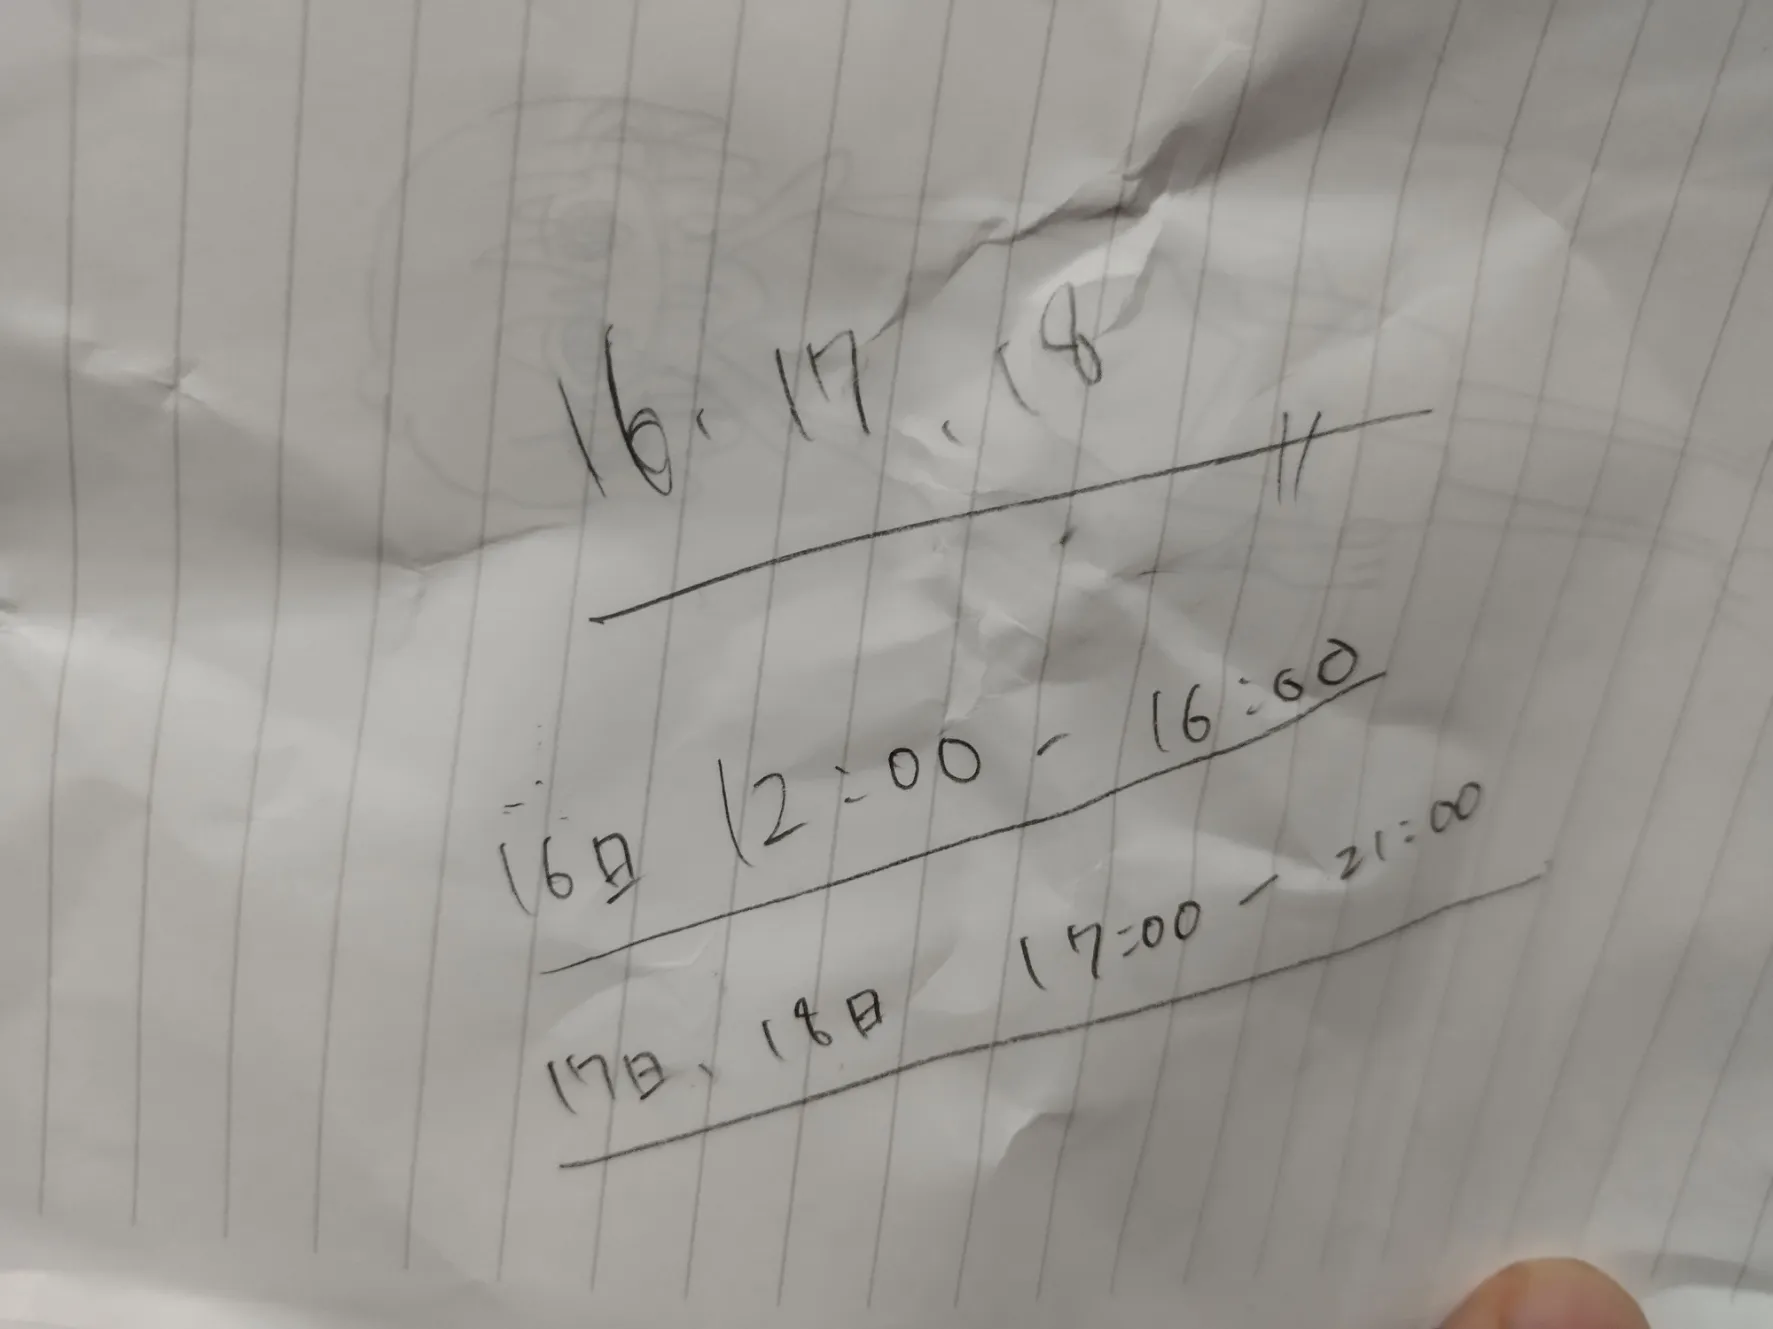 16、17、18
16日 12:00 - 16:00
17日、18日 17:00 - 21:00